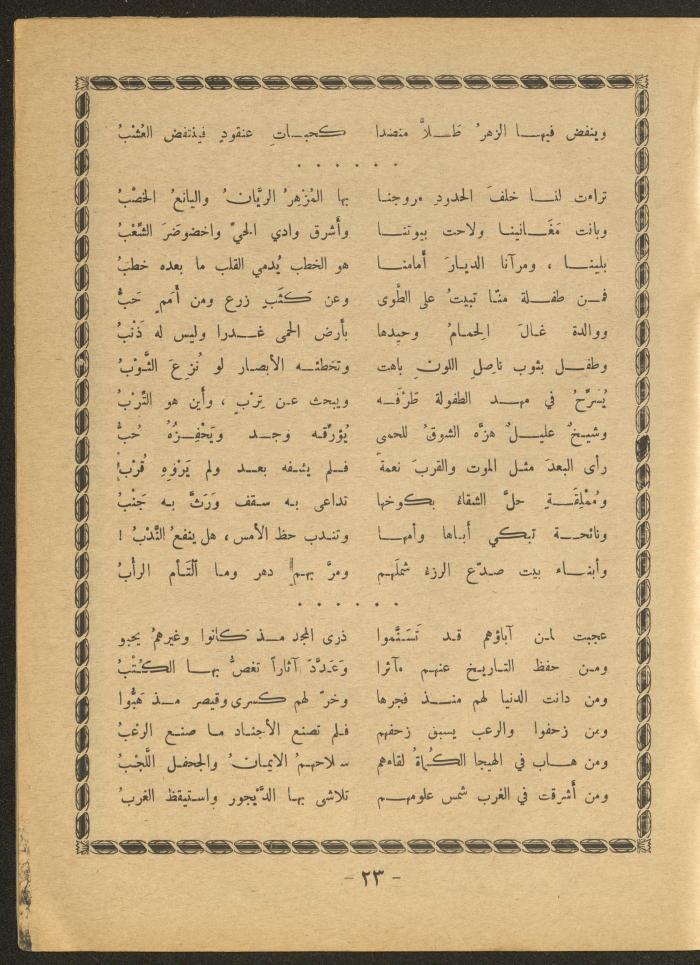 وينفض فيهـا الزهرُ طَـلاًّ منضدا كحبـاتِ عنقودٍ فينتفض العُشبُ
. . . . . .
تراءت لنـا خلفَ الحدودِ مروجنـا بها المُزْهِرُ الريَّانُ واليانعُ الخصْبُ
وبانت مَغَـانينـا ولاحت بيوتنـا وأَشرق وادي الحيِّ واخضوضرَ الشِّعْبُ
بلينـا ، ومرآنا الديارَ أَمامنـا هو الخطب يُدمي القلب ما بعده خطبُ
فمـن طفـلة منّـا تبيتُ على الطَّوى وعن كَثَبٍ زرع ومن أَممٍ حَبُّ
ووالدة غـالَ الحِمـامُ وحيدها بأرض الحمى غـدرا وليس له ذَنْبُ
وطفـل بثوب ناصِلِ اللون باهت وتخطئـه الأبصار لو نُزِعَ الثَّوْبُ
يُسَرِّحُ في مهـد الطفولة طَرْفَـه ويبحث عـن تِرْبٍ ، وأين هو التِّرْبُ
وشيـخٌ عليـلٌ هزَّه الشوقُ للحمى يُؤَرِّقـه وجـد ويَحْفِـزُهُ حُبُّ
رأى البعدَ مثـل الموت والقربَ نعمةً فـلم يشفه بعـد ولم يَرْوِهِ قُرْبُ
ومُمْلِقَـةٍ حلَّ الشقاءُ بكـوخها تداعى بـه سقف ورَثَّ بـه جَنْبُ
ونائحـة تبكي أَباها وأمهـا وتنـدب حظ الأمس ، هل ينفعُ النَّدْبُ !
وأَبنـاء بيت صـدّع الرزءُ شملَهـم ومرَّ بهـم دهر ومـا التَـأم الرأْبُ
. . . . . .
عجبت لمـن آباؤهم قـد تَسَنَّموا ذرى المجد مـذ كانوا وغيرهمُ يحبو
ومـن حفظ التـاريـخ عنهـم مآثرا وعَـدَّدَ آثاراً تغصُّ بهـا الكُتْبُ
ومن دانت الدنيا لهم منـذ فجرها وخرّ لهم كسرى وقيصر مـذ هَبُّوا
ومن زحفوا والرعب يسبق زحفهم فـلم تصنع الأجنـاد مـا صنع الرعْبُ
ومن هـاب في الهيجا الكُـماةُ لقاءهم سلاحهمُ الايمـانُ والجحفل اللَّجْبُ
ومن أَشرقت في الغرب شمس علومهـم تلاشى بهـا الدَّيْجور واستيقظ الغربُ
- ٢٣ -